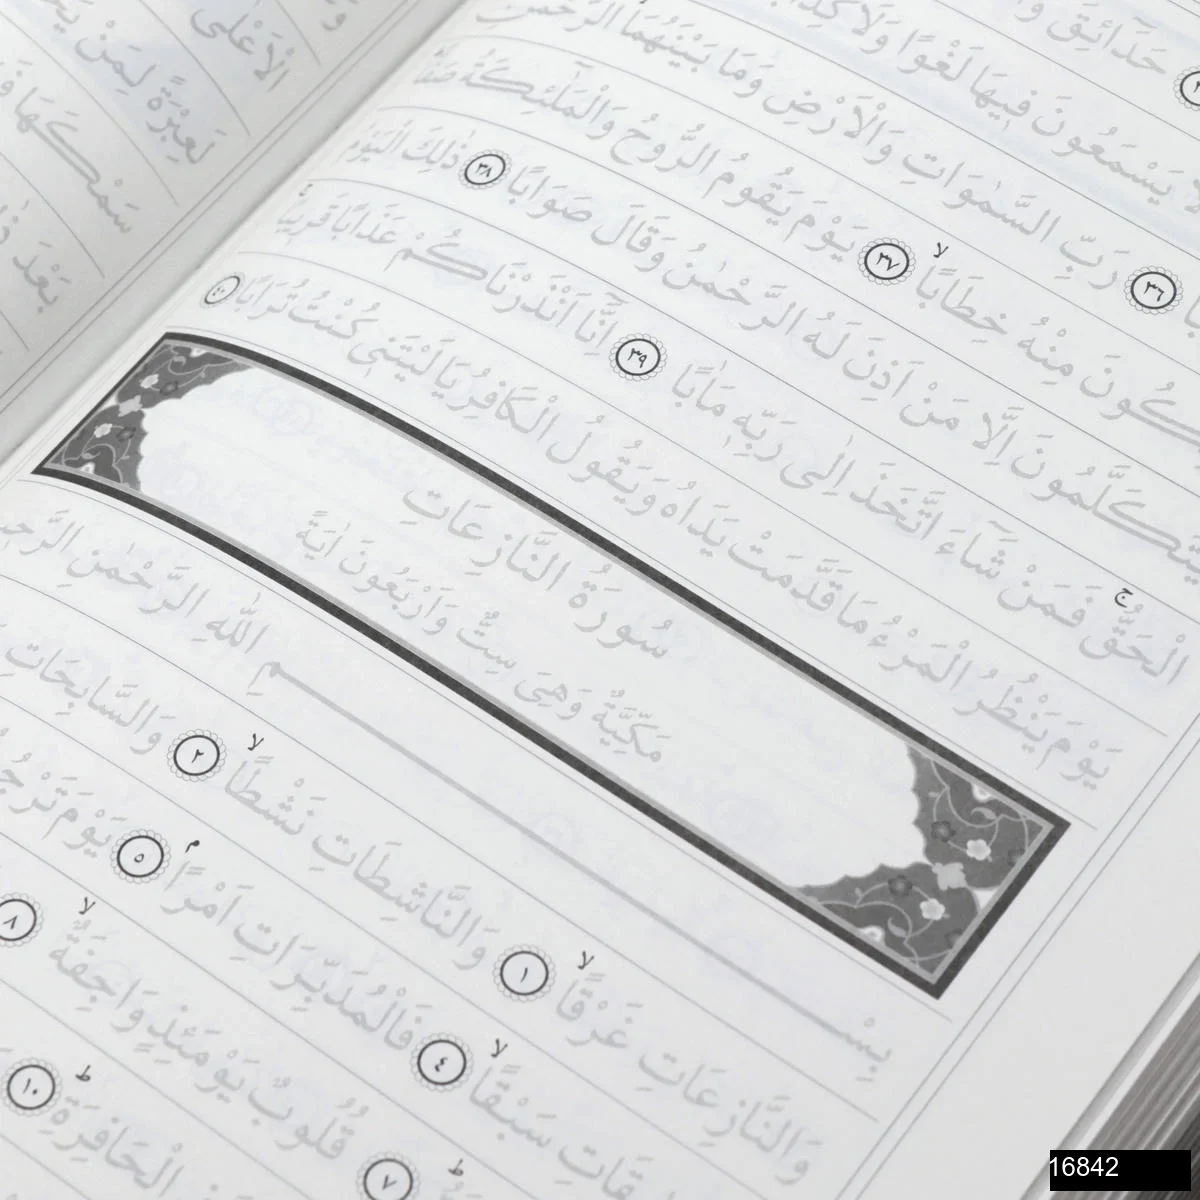 حَدَٓائِقَ
يَسْمَعُونَ ف۪يهَا لَغْوًا وَلَا كِذَّابًا
﴿٣٦﴾ رَبِّ السَّمٰوَاتِ وَالْاَرْضِ وَمَا بَيْنَهُمَا الرَّحْمٰنِ
مِنْهُ خِطَابًاۙ ﴿٣٧﴾ يَوْمَ يَقُومُ الرُّوحُ وَالْمَلٰٓئِكَةُ صَفًّا
يَتَكَلَّمُونَ اِلَّا مَنْ اَذِنَ لَهُ الرَّحْمٰنُ وَقَالَ صَوَابًا ﴿٣٨﴾ ذٰلِكَ الْيَوْمُ
الْحَقُّۚ فَمَنْ شَٓاءَ اتَّخَذَ اِلٰى رَبِّه۪ مَاٰبًا ﴿٣٩﴾ اِنَّٓا اَنْذَرْنَاكُمْ عَذَابًا قَر۪يبًاۚ
يَوْمَ يَنْظُرُ الْمَرْءُ مَا قَدَّمَتْ يَدَاهُ وَيَقُولُ الْكَافِرُ يَا لَيْتَن۪ي كُنْتُ تُرَابًا ﴿٤٠﴾
سُورَةُ النَّازِعَاتِ
مَكِّيَّةٌ وَهِيَ سِتٌّ وَاَرْبَعُونَ اٰيَةً
بِسْمِ اللّٰهِ الرَّحْمٰنِ الرَّح۪يمِ
وَالنَّازِعَاتِ غَرْقًاۙ ﴿١﴾ وَالنَّاشِطَاتِ نَشْطًاۙ ﴿٢﴾ وَالسَّابِحَاتِ
سَبْقًاۙ ﴿٤﴾ فَالْمُدَبِّرَاتِ اَمْرًاۢ ﴿٥﴾ يَوْمَ تَرْجُفُ
﴿٧﴾ قُلُوبٌ يَوْمَئِذٍ وَاجِفَةٌۙ ﴿٨﴾
الْحَافِرَةِۜ ﴿١٠﴾
الْاَعْلٰى
لَعِبْرَةً لِمَنْ
سَمْكَهَا
بَعْدَ
16842